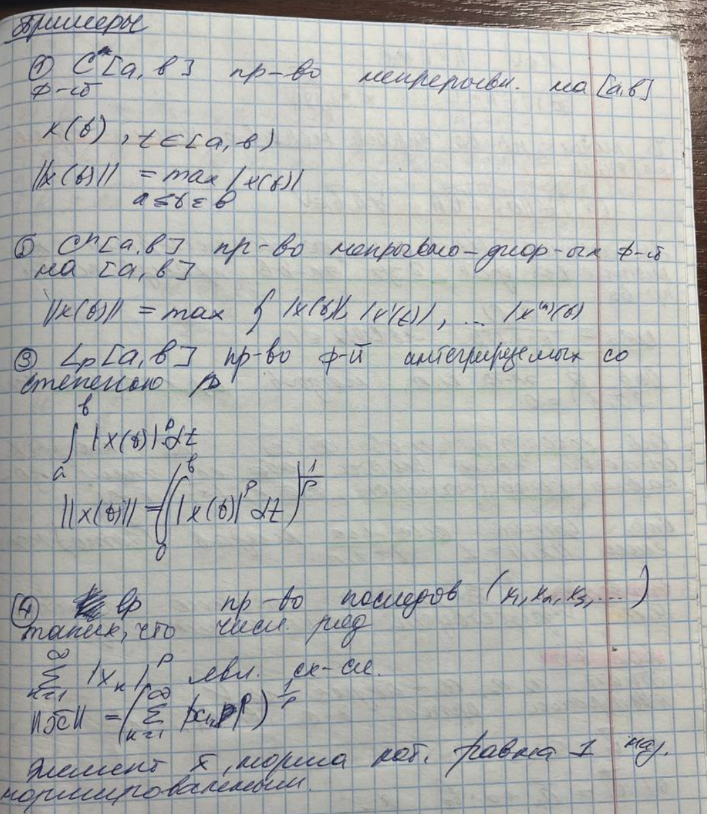 Примеры
① C[a, b] пр-во непрерывн. на [a,b]
ф-й
x(t), t∈[a, b)
||x(t)|| = max |x(t)|
a≤t≤b
② Cⁿ[a, b] пр-во непрывно-диф-ых ф-й
на [a, b]
||x(t)|| = max { |x(t)|, |x'(t)|, ... |x⁽ⁿ⁾(t)
③ Lp[a, b] пр-во ф-й интегрируемых со
степенью p
∫ₐᵇ |x(t)|ᵖ dt
||x(t)|| = (∫₀ᵇ |x(t)|ᵖ dt)^(1/p)
④ lp пр-во последов (x₁, x₂, x₃, ...)
таких, что числ. ряд
∑ₙ₌₁^∞ |xₙ|ᵖ явл. сх-ся.
||x̄|| = (∑ₙ₌₁^∞ |xₙ|ᵖ)^(1/p)
Элемент x̄, норма кот. равна 1 наз.
нормированным.